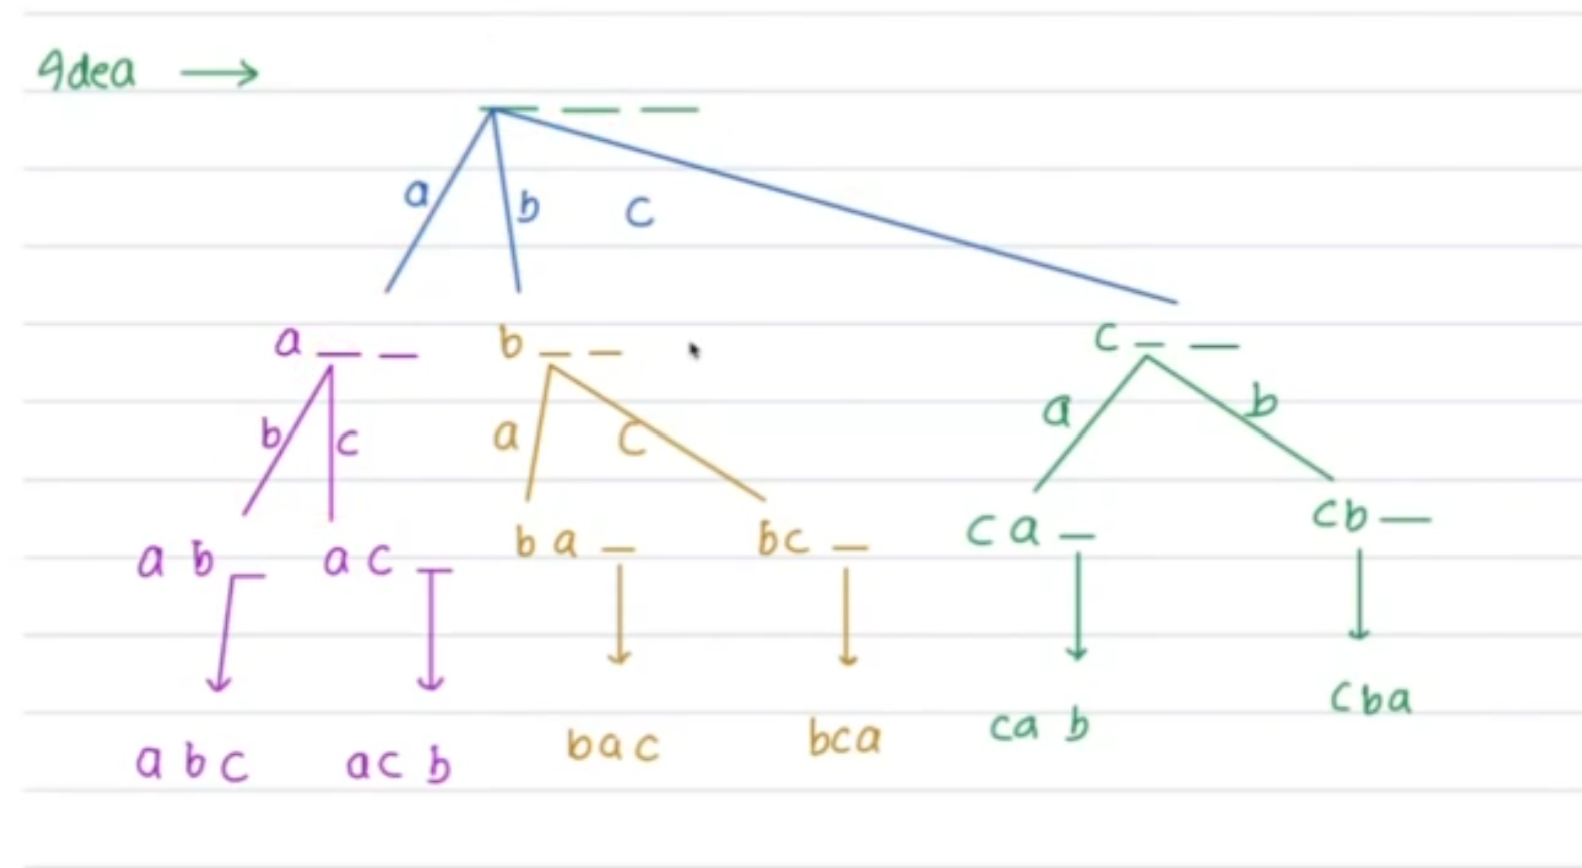 Idea →
— — —
a b c
a — — b — — c — —
b c a c a b
a b — a c — b a — b c — c a — c b —
a b c a c b b a c b c a c a b c b a